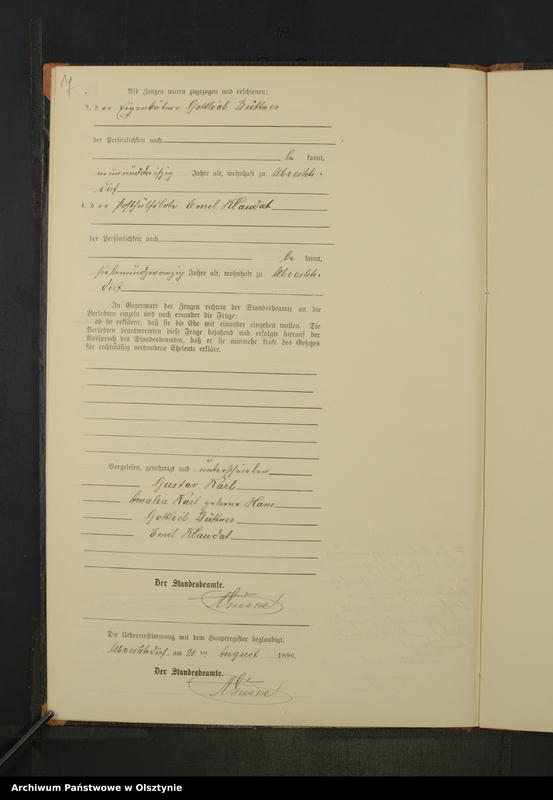 7
Als Zeugen waren zugezogen und erschienen:
3. der Eigenkätner Gottlieb Büttner
der Persönlichkeit nach
be kannt,
neununddreißig Jahre alt, wohnhaft zu Albrechts-
dorf
4. der Posthülfsbote Emil Klaudat
der Persönlichkeit nach
be kannt,
siebenundzwanzig Jahre alt, wohnhaft zu Albrechts-
dorf
In Gegenwart der Zeugen richtete der Standesbeamte an die
Verlobten einzeln und nach einander die Frage:
ob sie erklären, daß sie die Ehe mit einander eingehen wollen. Die
Verlobten beantworteten diese Frage bejahend und erfolgte hierauf der
Ausspruch des Standesbeamten, daß er sie nunmehr kraft des Gesetzes
für rechtmäßig verbundene Eheleute erkläre.
Vorgelesen, genehmigt und unterschrieben
Gustav Karl
Amalia Karl geborene Hans
Gottlieb Büttner
Emil Klaudat
Der Standesbeamte.
Die Uebereinstimmung mit dem Hauptregister beglaubigt.
Albrechtsdorf, am 21 ten August 1896.
Der Standesbeamte.
Archiwum Państwowe w Olsztynie